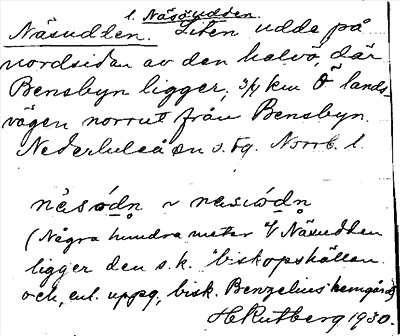 l. Näsöudden.
Näsudden. Liten udde på
nordsidan av den halvö, där
Bensbyn ligger, 3/4 km Ö lands-
vägen norrut från Bensbyn.
Nederluleå sn o. tg. Norrb. l.
(Några hundra meter Näsudden
ligger den s.k. biskopshällan
och, enl. uppg., bisk. Benzelius' hemgård)
H. Rutberg 1930.